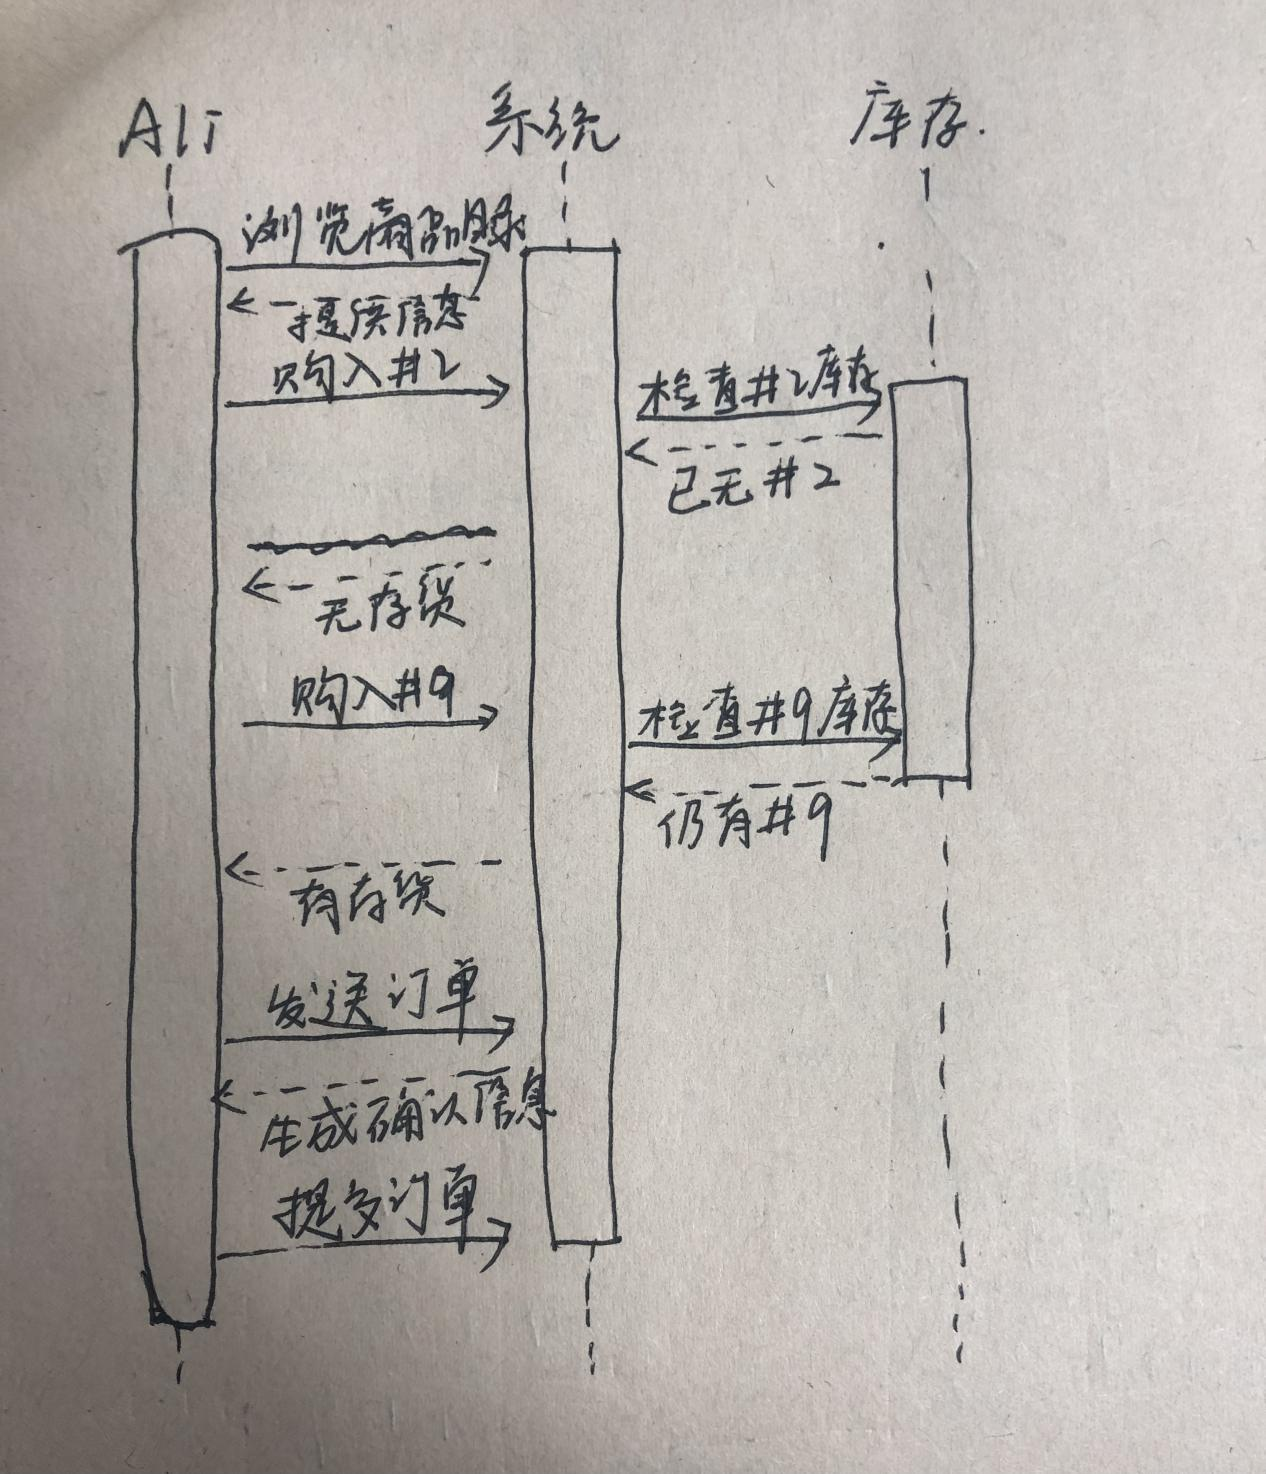 Ali
系统
库存.
浏览商品目录
提供信息
购入#2
检查#2库存
已无#2
无存货
购入#9
检查#9库存
仍有#9
有存货
发送订单
生成确认信息
提交订单